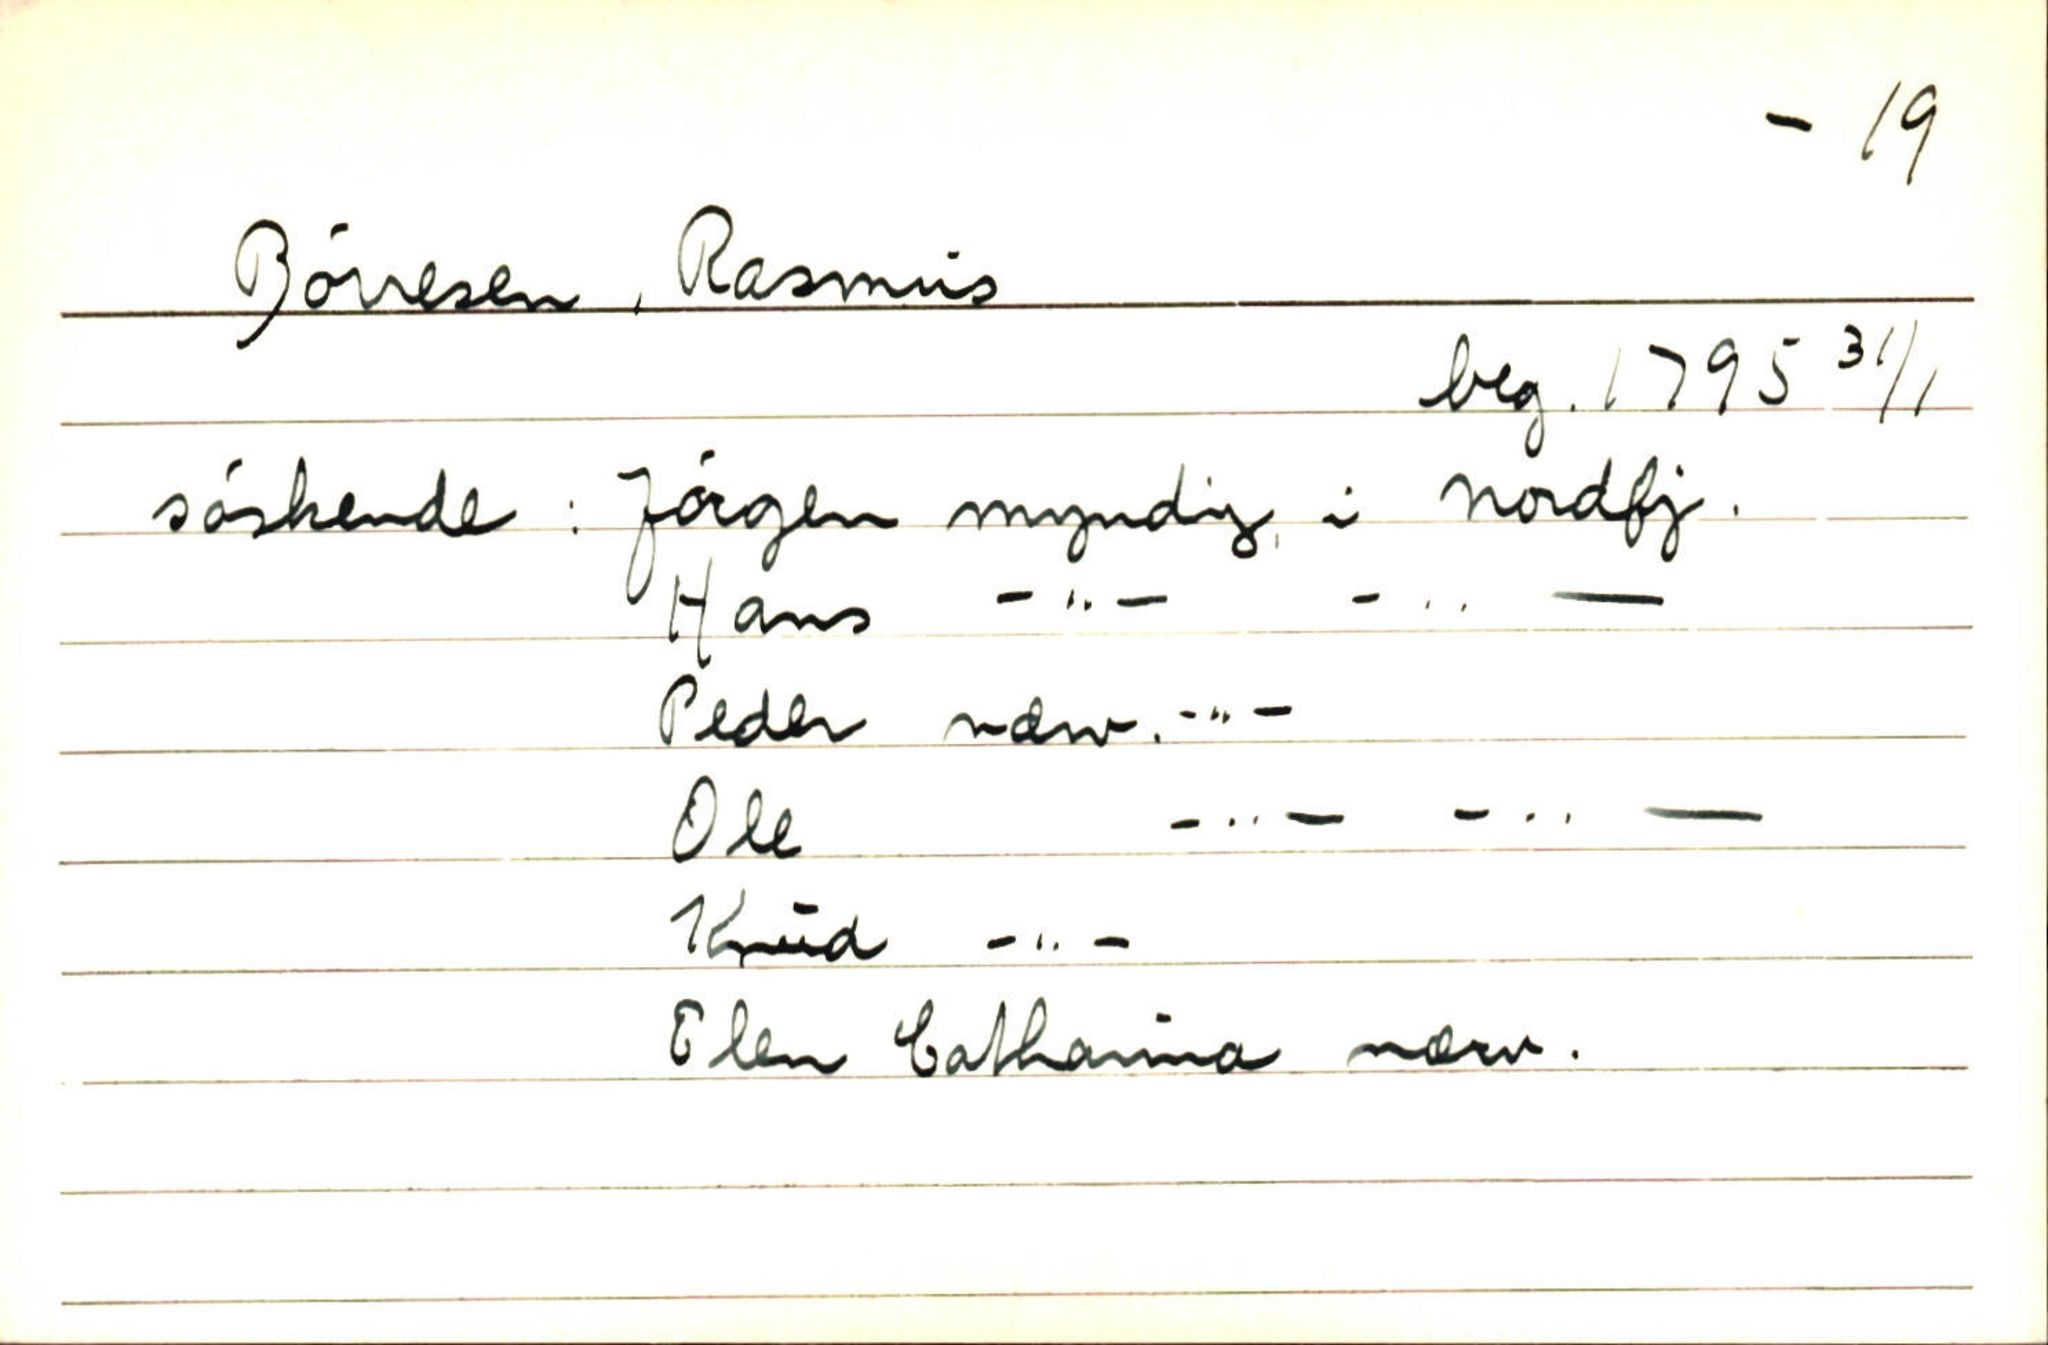 - 19
Børresen, Rasmus
beg. 1795 31/1
søskende : Jørgen myndig, i Nordfj.
Hans -"- -"-
Peder nærv. -"-
Ole -"- -"-
Knud -"-
Elen Catharina nærv.